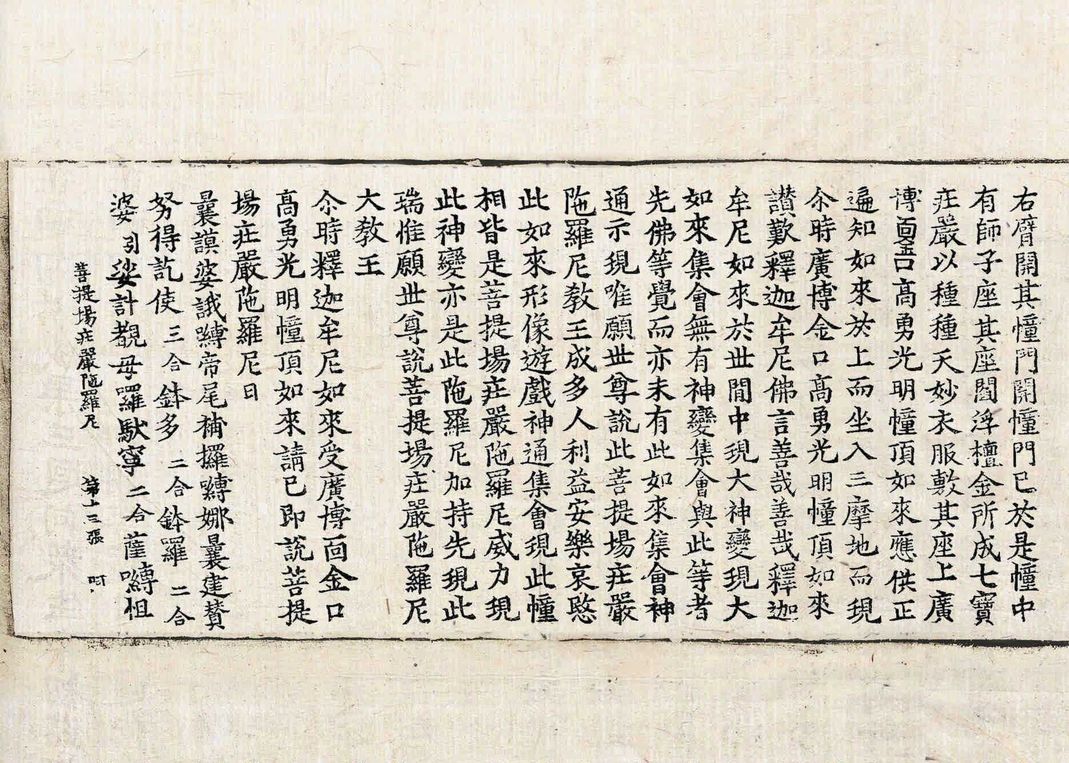 右臂開其幢門開幢門已於是幢中
有師子座其座閻浮檀金所成七寶
莊嚴以種種天妙衣服敷其座上廣
博面金口高勇光明幢頂如來應供正
遍知如來於上而坐入三摩地而現
尒時廣博金口高勇光明幢頂如來
讃歎釋迦牟尼佛言善哉善哉釋迦
牟尼如來於世間中現大神變現大
如來集會無有神變集會與此等者
先佛等覺而亦未有此如來集會神
通示現唯願世尊說此菩提場莊嚴
陁羅尼教王成多人利益安樂哀愍
此如來形像遊戲神通集會現此幢
相皆是菩提場莊嚴陁羅尼威力現
此神變亦是此陁羅尼加持先現此
瑞惟願世尊說菩提場莊嚴陁羅尼
大教王
尒時釋迦牟尼如來受廣博面金口
高勇光明幢頂如來請已即說菩提
場莊嚴陁羅尼曰
曩謨婆誐嚩帝尾補攞嚩娜曩建賛
努得訖使三合鉢多二合鉢羅二合
婆引娑計覩母羅馱寧二合薩嚩怛
菩提場莊嚴陁羅尼 第十三張